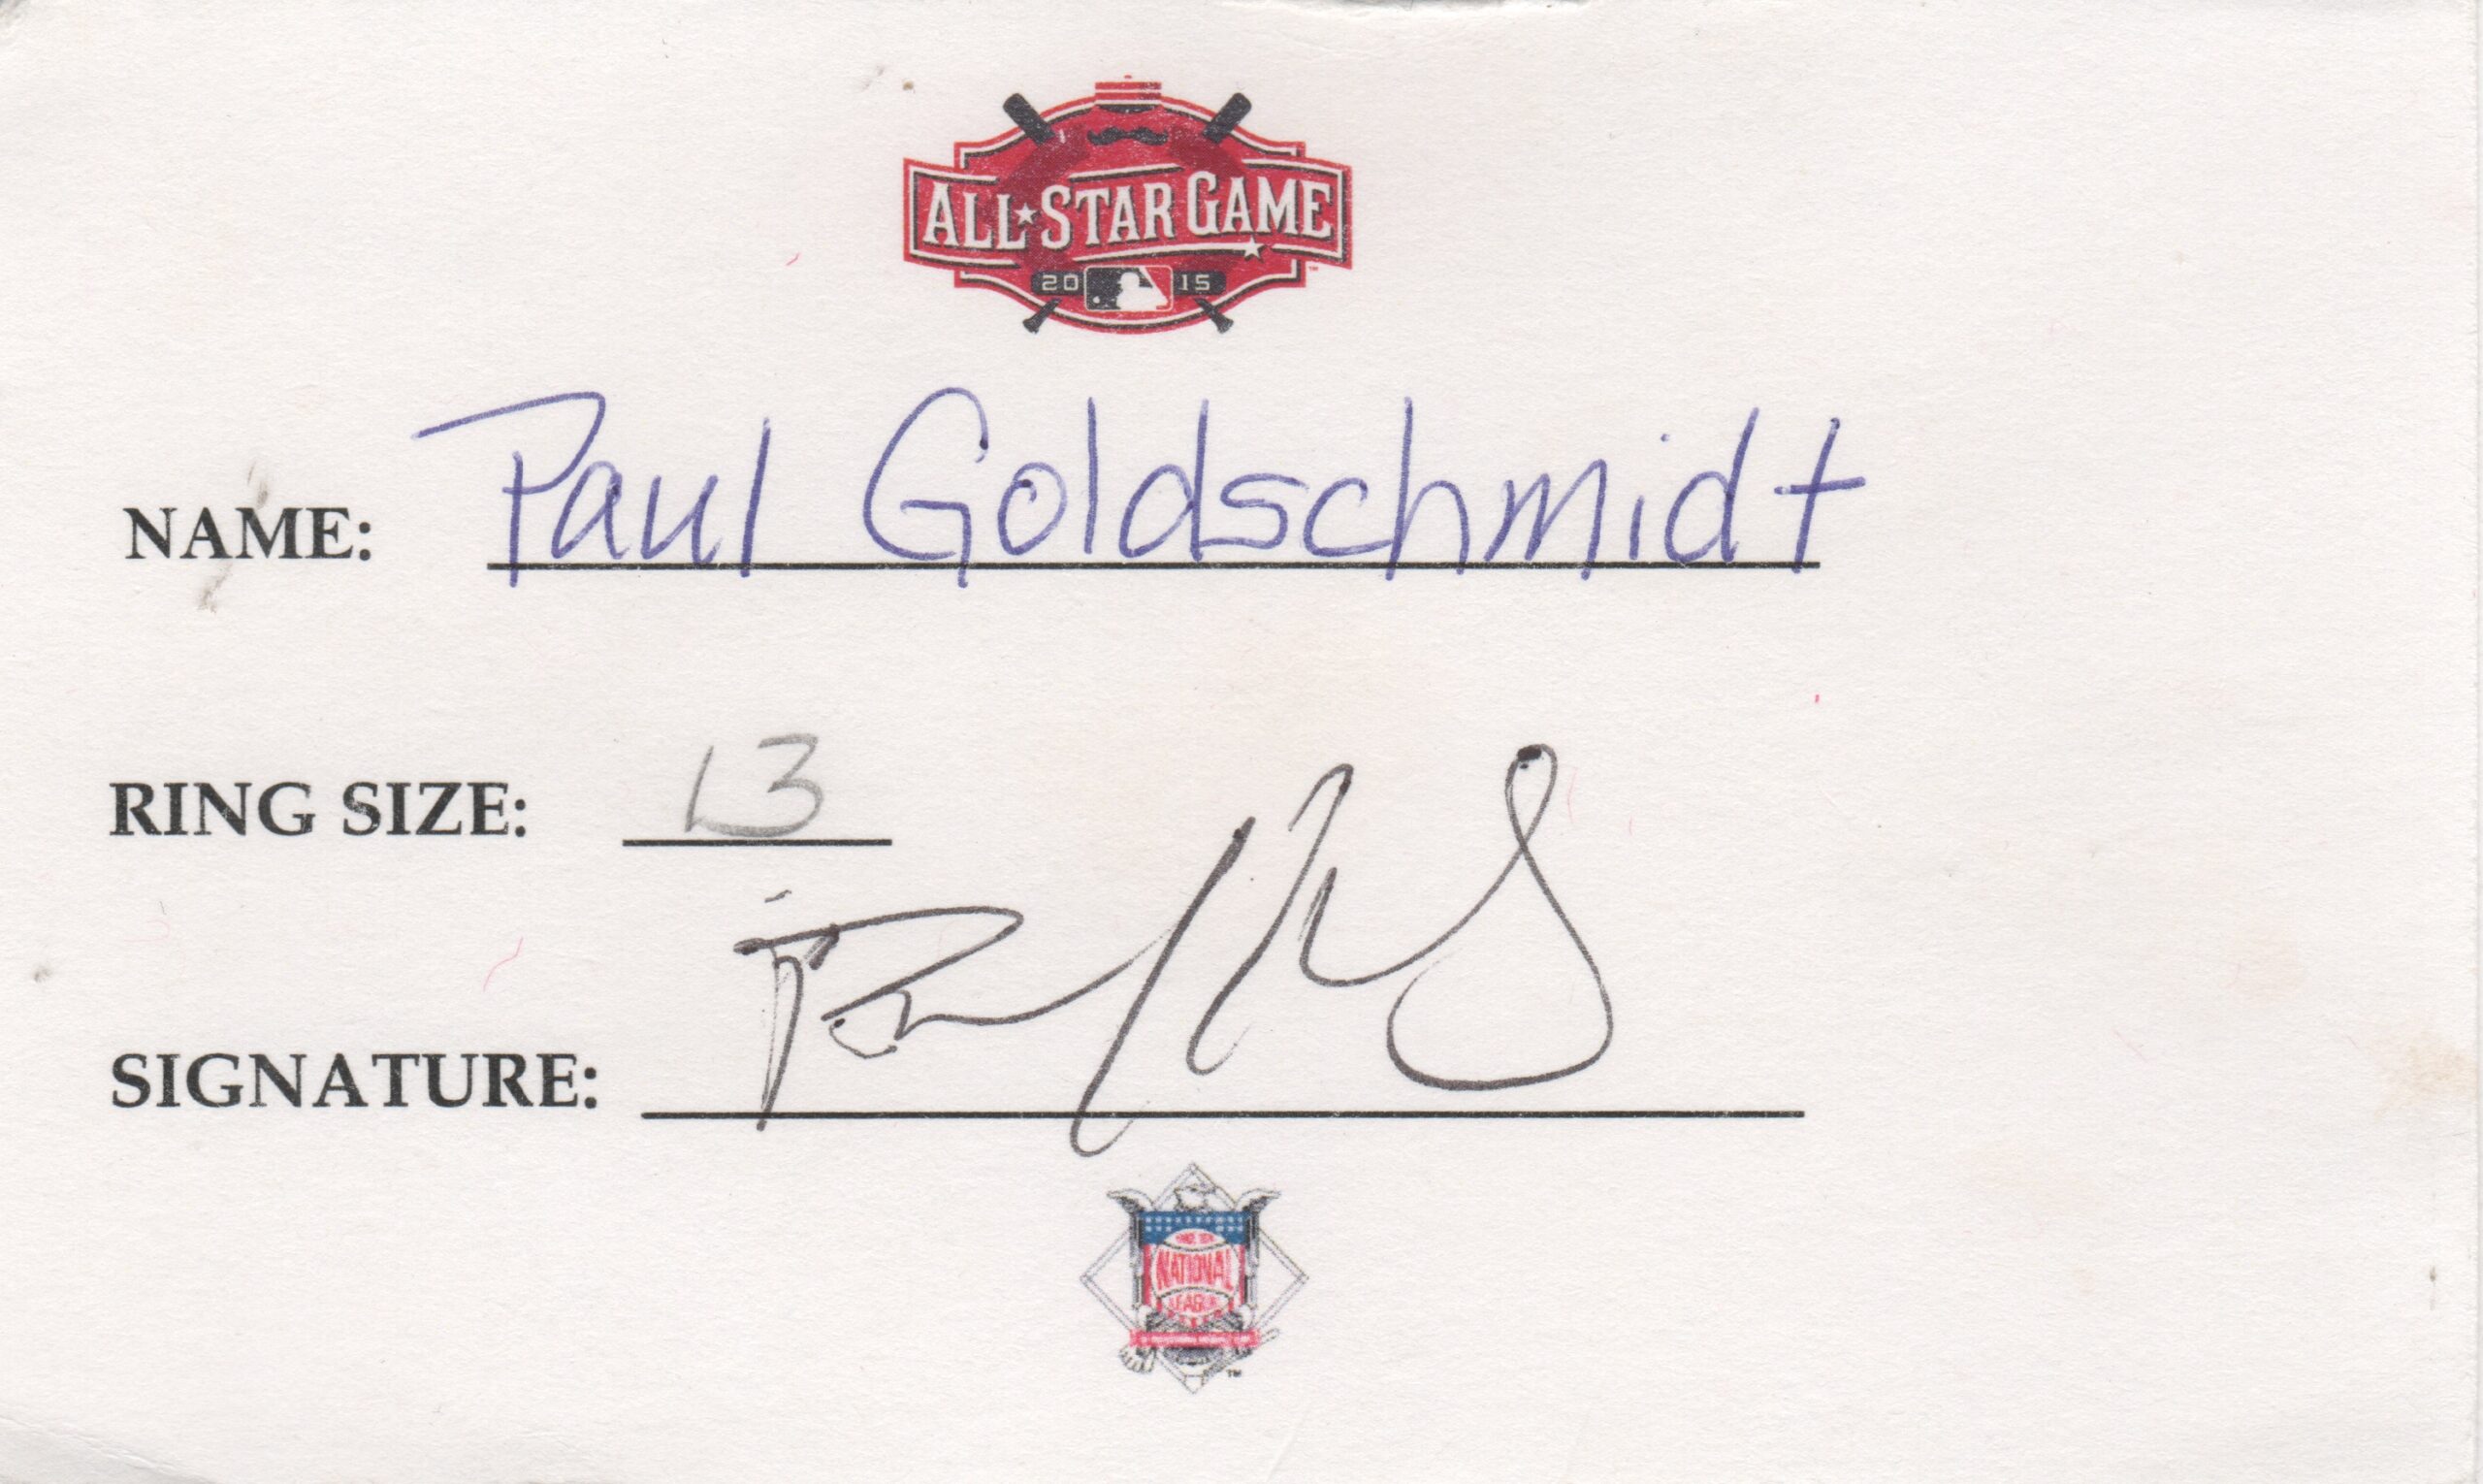 ALL★STAR GAME
20 15
NAME: Paul Goldschmidt
RING SIZE: 13
SIGNATURE:
NATIONAL
LEAGUE
TM